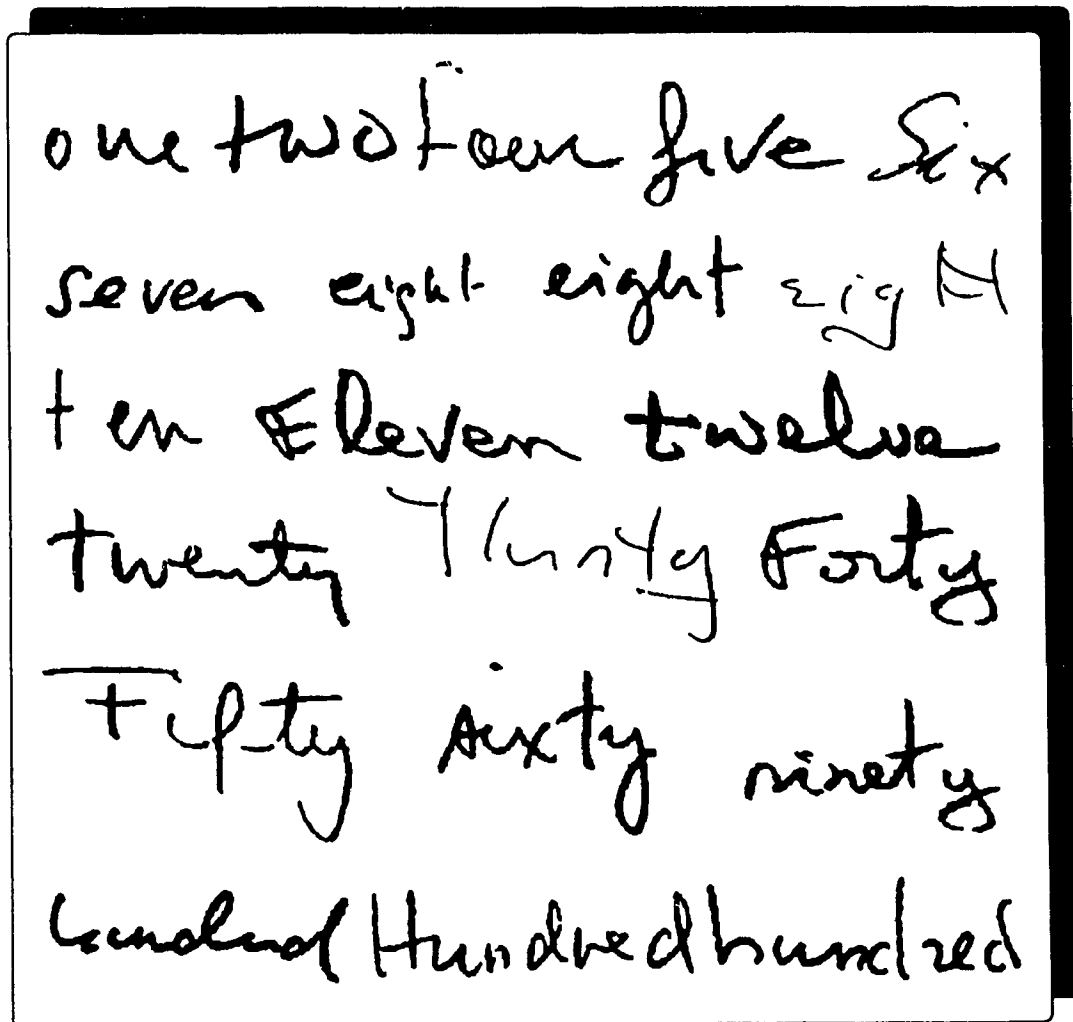 one two Four five Six
seven eight eight eigH
ten Eleven twelve
twenty Thirty Forty
Fifty sixty ninety
hundred Hundred hundred